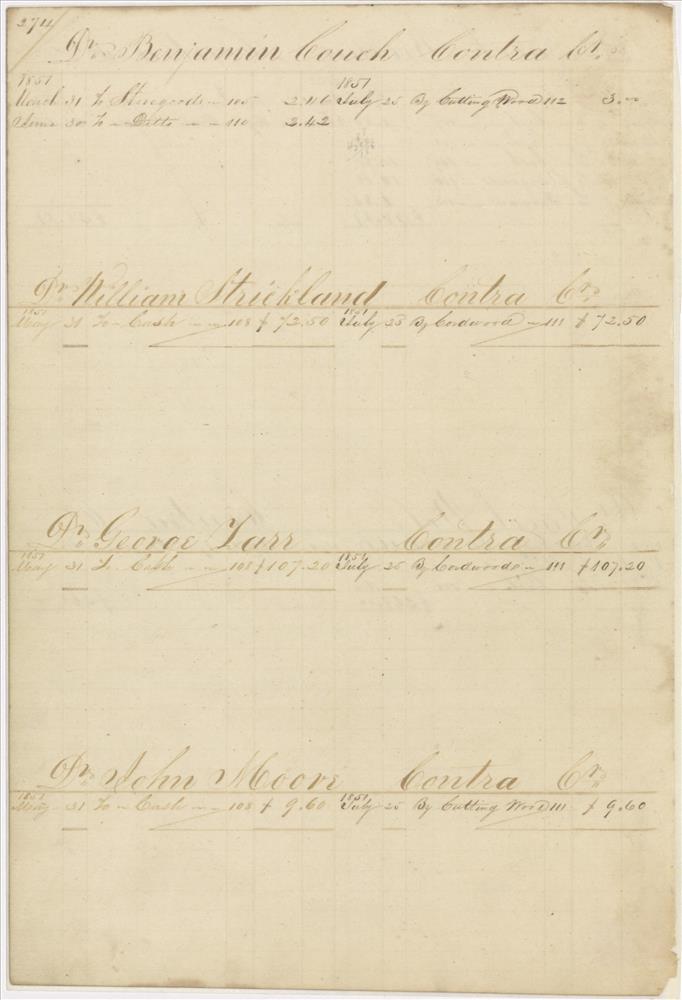 274
Dr. Benjamin Couch Contra Cr.
1851 1851
March 31 To Storegoods 105 July 25 By Cutting Wood 112 3.—
June 30 To — Ditto — — 110 2.42
Dr. William Strickland Contra Cr.
1851 1851
May 31 To — Cash — — 108 $ 72.50 July 25 By Cordwood — 111 $ 72.50
Dr. George Tarr Contra Cr.
1851 1851
May 31 To Cash — — 108 $ 107.20 July 25 By Cordwood — 111 $ 107.20
Dr. John Moore Contra Cr.
1851 1851
May 31 To — Cash — — 108 $ 9.60 July 25 By Cutting Wood 111 $ 9.60